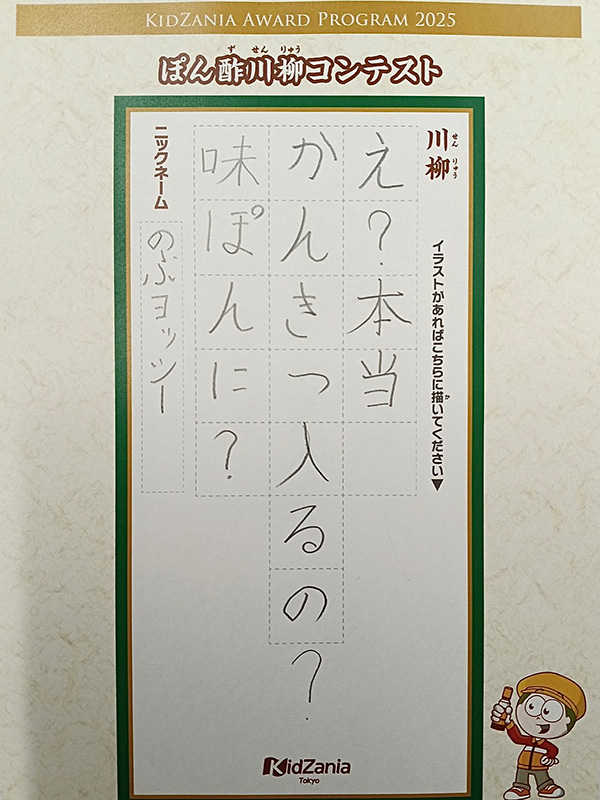 KIDZANIA AWARD PROGRAM 2025
ぽん酢川柳コンテスト
ず せん りゅう
川柳
せん りゅう
イラストがあればこちらに描いてください▼
か
え?本当
かんきっ入るの?
味ぽんに?
ニックネーム
のぶヨッシー
KidZania
Tokyo